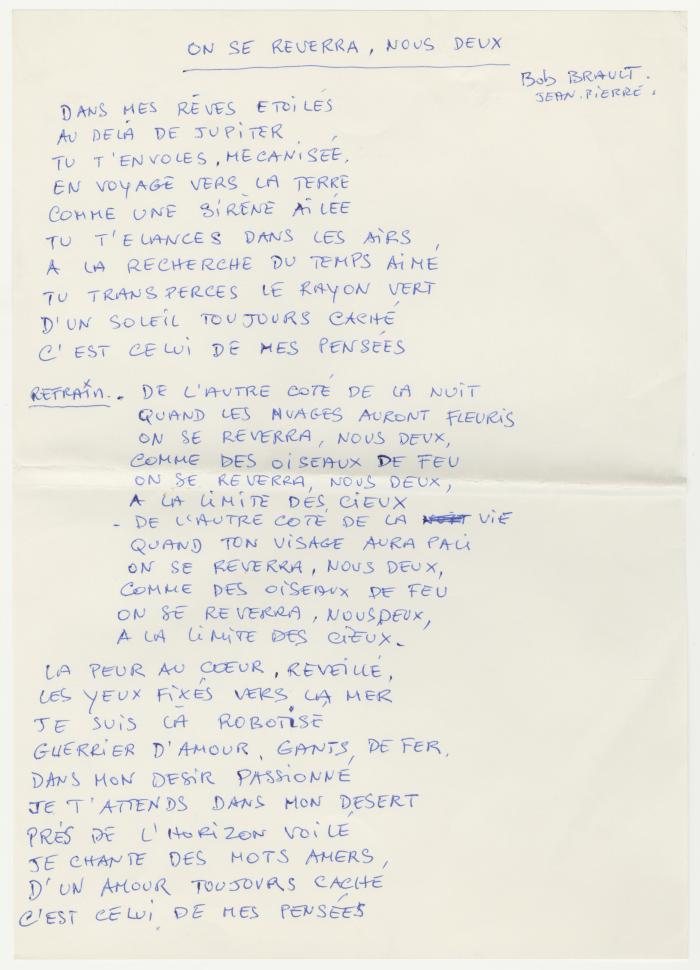 ON SE REVERRA, NOUS DEUX
Bob BRAULT.
JEAN.PIERRE.
DANS MES RÊVES ETOILÉS
AU DELÀ DE JUPITER
TU T'ENVOLES, MÉCANISÉE,
EN VOYAGE VERS LA TERRE
COMME UNE SIRÈNE AILÉE
TU T'ELANCES DANS LES AIRS
A LA RECHERCHE DU TEMPS AIMÉ
TU TRANSPERCES LE RAYON VERT
D'UN SOLEIL TOUJOURS CACHÉ
C'EST CELUI DE MES PENSÉES
REFRAIN.. DE L'AUTRE COTÉ DE LA NUIT
QUAND LES NUAGES AURONT FLEURIS
ON SE REVERRA, NOUS DEUX,
COMME DES OISEAUX DE FEU
ON SE REVERRA, NOUS DEUX,
A LA LIMITE DES CIEUX
- DE L'AUTRE COTÉ DE LA VIE
QUAND TON VISAGE AURA PALI
ON SE REVERRA, NOUS DEUX,
COMME DES OISEAUX DE FEU
ON SE REVERRA, NOUS DEUX,
A LA LIMITE DES CIEUX.
LA PEUR AU CŒUR, REVEILLÉ,
LES YEUX FIXÉS VERS LA MER
JE SUIS LÀ ROBOTISÉ
GUERRIER D'AMOUR, GANTS DE FER,
DANS MON DESIR PASSIONNÉ
JE T'ATTENDS DANS MON DÉSERT
PRÉS DE L'HORIZON VOILÉ
JE CHANTE DES MOTS AMERS,
D'UN AMOUR TOUJOURS CACHÉ
C'EST CELUI DE MES PENSÉES